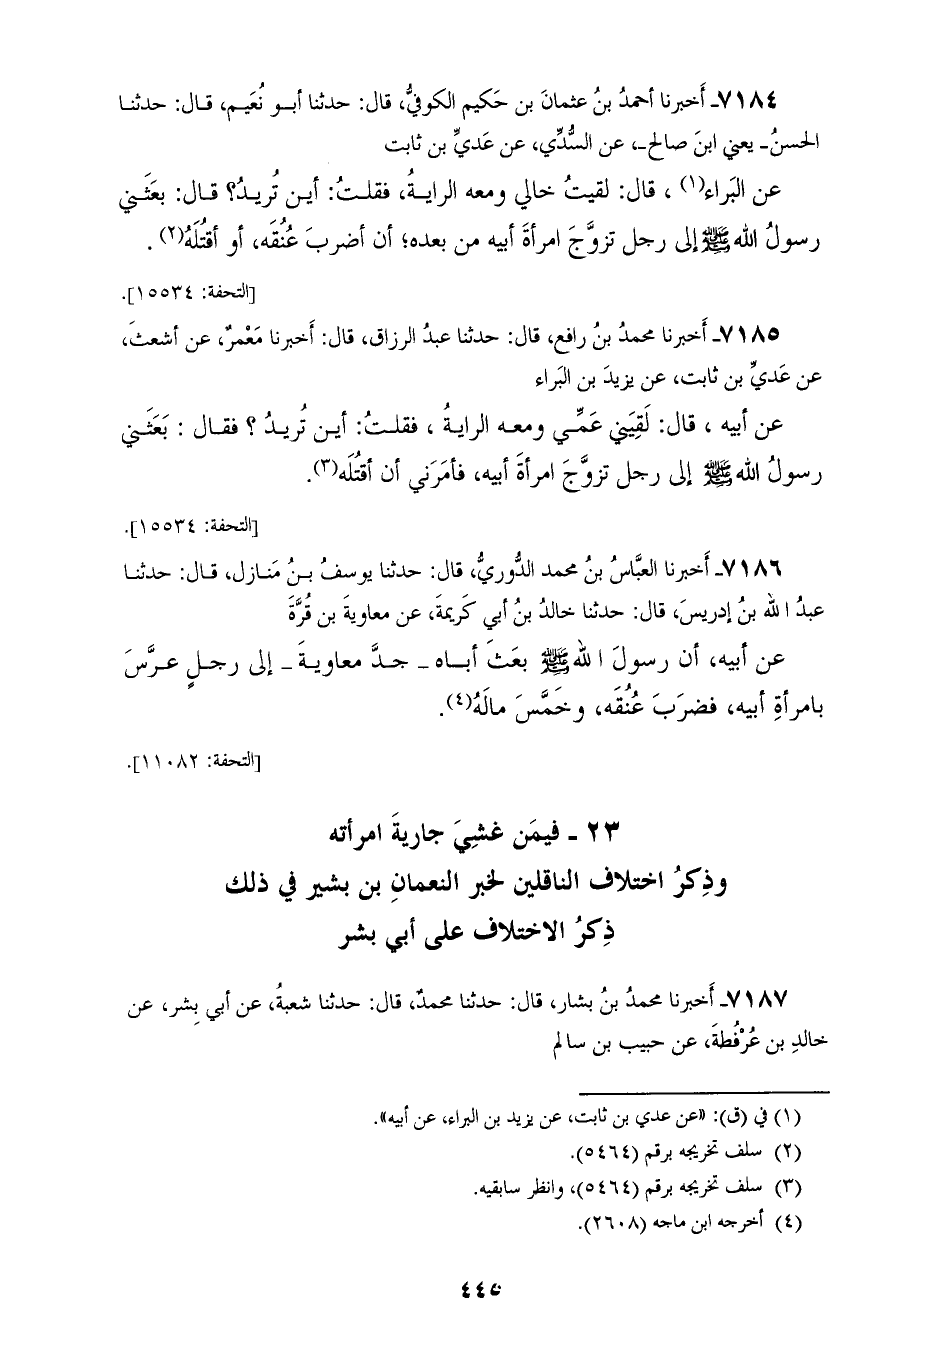 ٧١٨٤ـ أَخبرنا أحمدُ بنُ عثمانَ بن حَكيم الكوفيُّ، قال: حدثنا أبـو نُعَيم، قـال: حدثنـا
الحسنُ ـ يعني ابنَ صالح ـ، عن السُّدِّي، عن عَديِّ بن ثابت
عن البَراء(١) ، قال: لقيتُ خالي ومعه الرايـةُ، فقلـتُ: أيـن تُريـدُ؟ قـال: بعَثَـني
رسولُ الله ﷺ إلى رجل تزوَّجَ امرأةَ أبيه من بعده؛ أن أضربَ عُنُقَه، أو أقتُلَهُ(٢) .
[التحفة: ١٥٥٣٤].
٧١٨٥ـ أَخبرنا محمدُ بنُ رافع، قال: حدثنا عبدُ الرزاق، قال: أَخبرنا مَعْمرٌ، عن أشعثَ،
عن عَديِّ بن ثابت، عن يزيدَ بن البَراء
عن أبيه ، قال: لَقِيَني عَمِّي ومعـه الرايـةُ ، فقلـتُ: أيـن تُريـدُ ؟ فقـال : بَعَثَـني
رسولُ الله ﷺ إلى رجل تزوَّجَ امرأةَ أبيه، فأمَرَني أن أقتُلَه(٣).
[التحفة: ١٥٥٣٤].
٧١٨٦ـ أَخبرنا العبَّاسُ بنُ محمد الدُّوريُّ، قال: حدثنا يوسفُ بـنُ مَنـازل، قـال: حدثنـا
عبدُ الله بنُ إدريسَ، قال: حدثنا خالدُ بنُ أبي كَريمةَ، عن معاويةَ بن قُرَّةَ
عن أبيه، أن رسولَ الله ﷺ بعَثَ أبـاه ـ جـدَّ معاويـةَ ـ إلى رجـلٍ عـرَّسَ
بامرأةِ أبيه، فضرَبَ عُنُقَه، وخَمَّسَ مالَهُ(٤).
[التحفة: ١١٠٨٢].
٢٣ ـ فيمَن غشِيَ جاريةَ امرأته
وذِكرُ اختلاف الناقلين لخبر النعمانِ بن بشير في ذلك
ذِكرُ الاختلاف على أبي بشر
٧١٨٧ـ أَخبرنا محمدُ بنُ بشار، قال: حدثنا محمدٌ، قال: حدثنا شعبةُ، عن أبي بِشر، عن
خالدِ بن عُرْفُطةَ، عن حبيب بن سالم
(١) في (ق): «عن عدي بن ثابت، عن يزيد بن البراء، عن أبيه».
(٢) سلف تخريجه برقم (٥٤٦٤).
(٣) سلف تخريجه برقم (٥٤٦٤)، وانظر سابقيه.
(٤) أخرجه ابن ماجه (٢٦٠٨).
٤٤٥